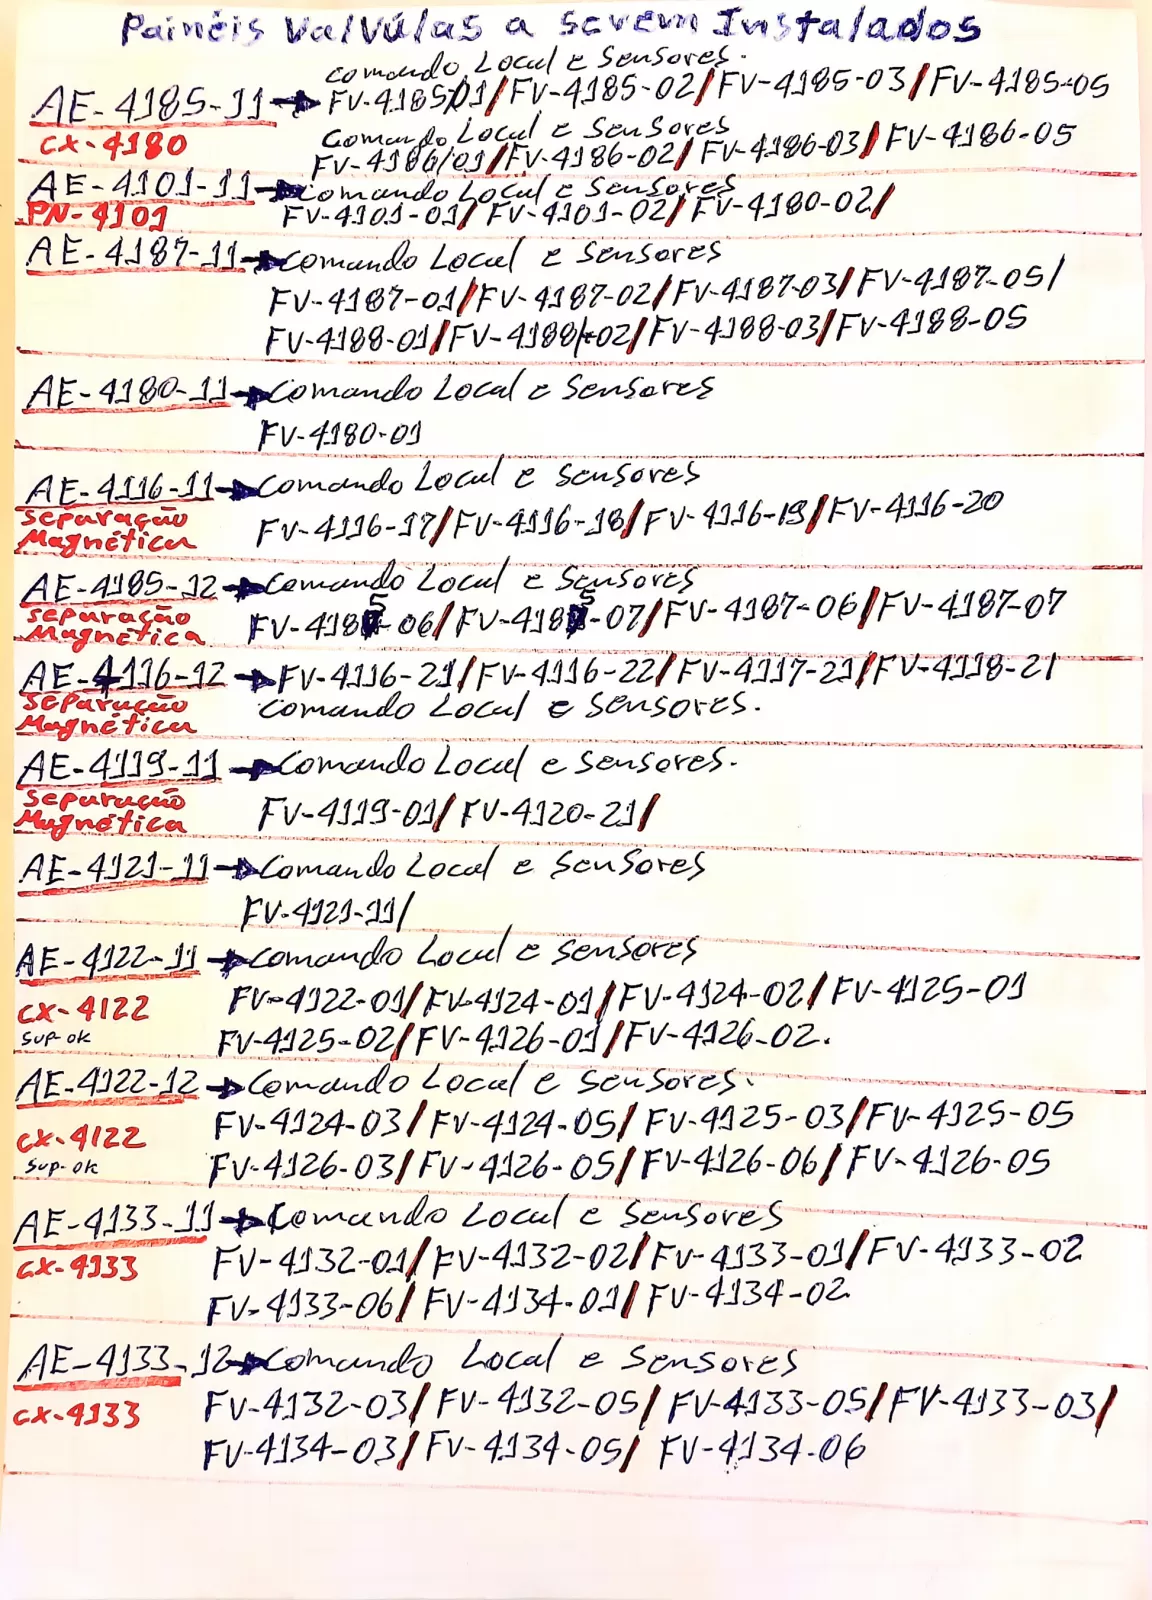 Painéis Valvúlas a serem Instalados
comando Local e Sensores.
AE-4185-11 → FV-4185/01/FV-4185-02/FV-4185-03/FV-4185-05
CX-4180 Comando Local e Sensores
FV-4186/01/FV-4186-02/FV-4186-03/FV-4186-05
AE-4101-11 → comando Local e Sensores
PN-4101 FV-4101-01/FV-4101-02/FV-4180-02/
AE-4187-11 → Comando Local e Sensores
FV-4187-01/FV-4187-02/FV-4187-03/FV-4187-05/
FV-4188-01/FV-4188-02/FV-4188-03/FV-4188-05
AE-4180-11 → Comando Local e Sensores
FV-4180-01
AE-4116-11 → Comando Local e Sensores
Separação FV-4116-17/FV-4116-18/FV-4116-19/FV-4116-20
Magnética
AE-4185-12 → Comando Local e Sensores
Separação FV-4185-06/FV-4185-07/FV-4187-06/FV-4187-07
Magnética
AE-4116-12 → FV-4116-21/FV-4116-22/FV-4117-21/FV-4118-21
Separação comando Local e Sensores.
Magnética
AE-4119-11 → Comando Local e Sensores.
Separação FV-4119-01/FV-4120-21/
Magnética
AE-4121-11 → Comando Local e Sensores
FV-4121-11/
AE-4122-11 → Comando Local e Sensores
CX-4122 FV-4122-01/FV-4124-01/FV-4124-02/FV-4125-01
Sup-ok FV-4125-02/FV-4126-01/FV-4126-02.
AE-4122-12 → Comando Local e Sensores.
CX-4122 FV-4124-03/FV-4124-05/FV-4125-03/FV-4125-05
Sup-ok FV-4126-03/FV-4126-05/FV-4126-06/FV-4126-05
AE-4133-11 → Comando Local e Sensores
CX-4133 FV-4132-01/FV-4132-02/FV-4133-01/FV-4133-02
FV-4133-06/FV-4134-01/FV-4134-02
AE-4133-12 → Comando Local e Sensores
CX-4133 FV-4132-03/FV-4132-05/FV-4133-05/FV-4133-03/
FV-4134-03/FV-4134-05/FV-4134-06